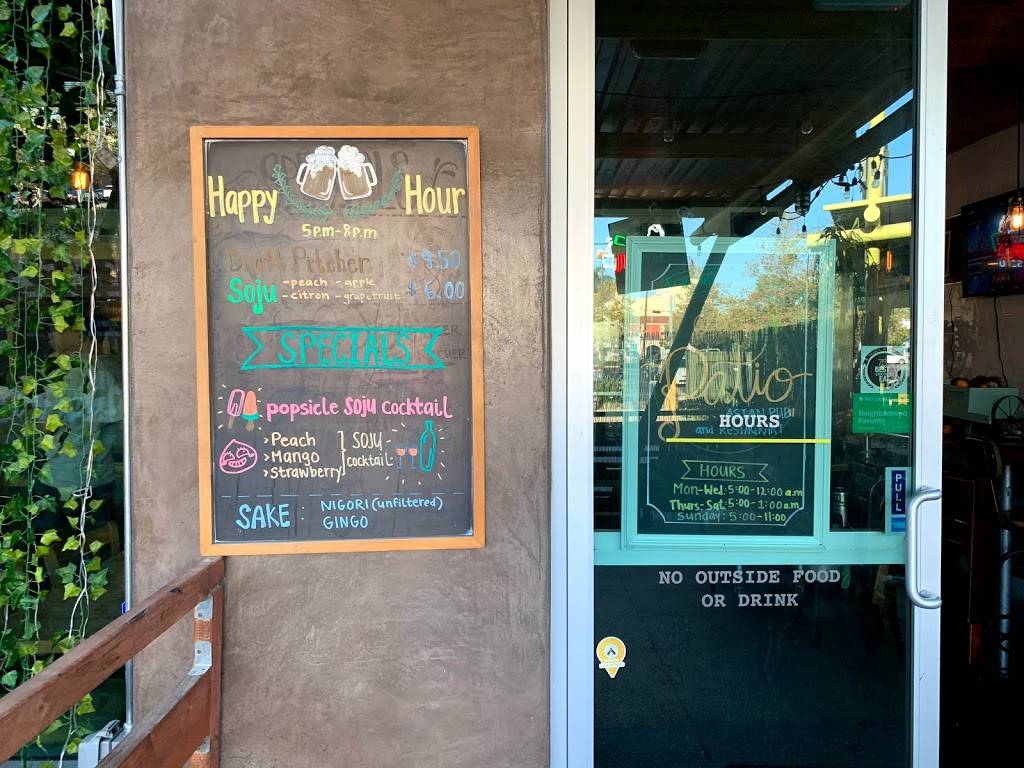 Happy Hour
5p.m-8p.m
Draft Pitcher $9.50
Soju -peach -apple $6.00
-citron -grapefruit
SPECIALS
popsicle soju cocktail
>Peach
>Mango
>Strawberry
SOJU
cocktail
SAKE : NIGORI (unfiltered)
GINGO
Patio
ASIAN PUB
and RESTAURANT
HOURS
HOURS
Mon-Wed: 5:00-12:00 a.m
Thurs-Sat: 5:00-1:00 a.m
Sunday: 5:00-11:00
NO OUTSIDE FOOD
OR DRINK
Neighborhood
Favorite
PULL